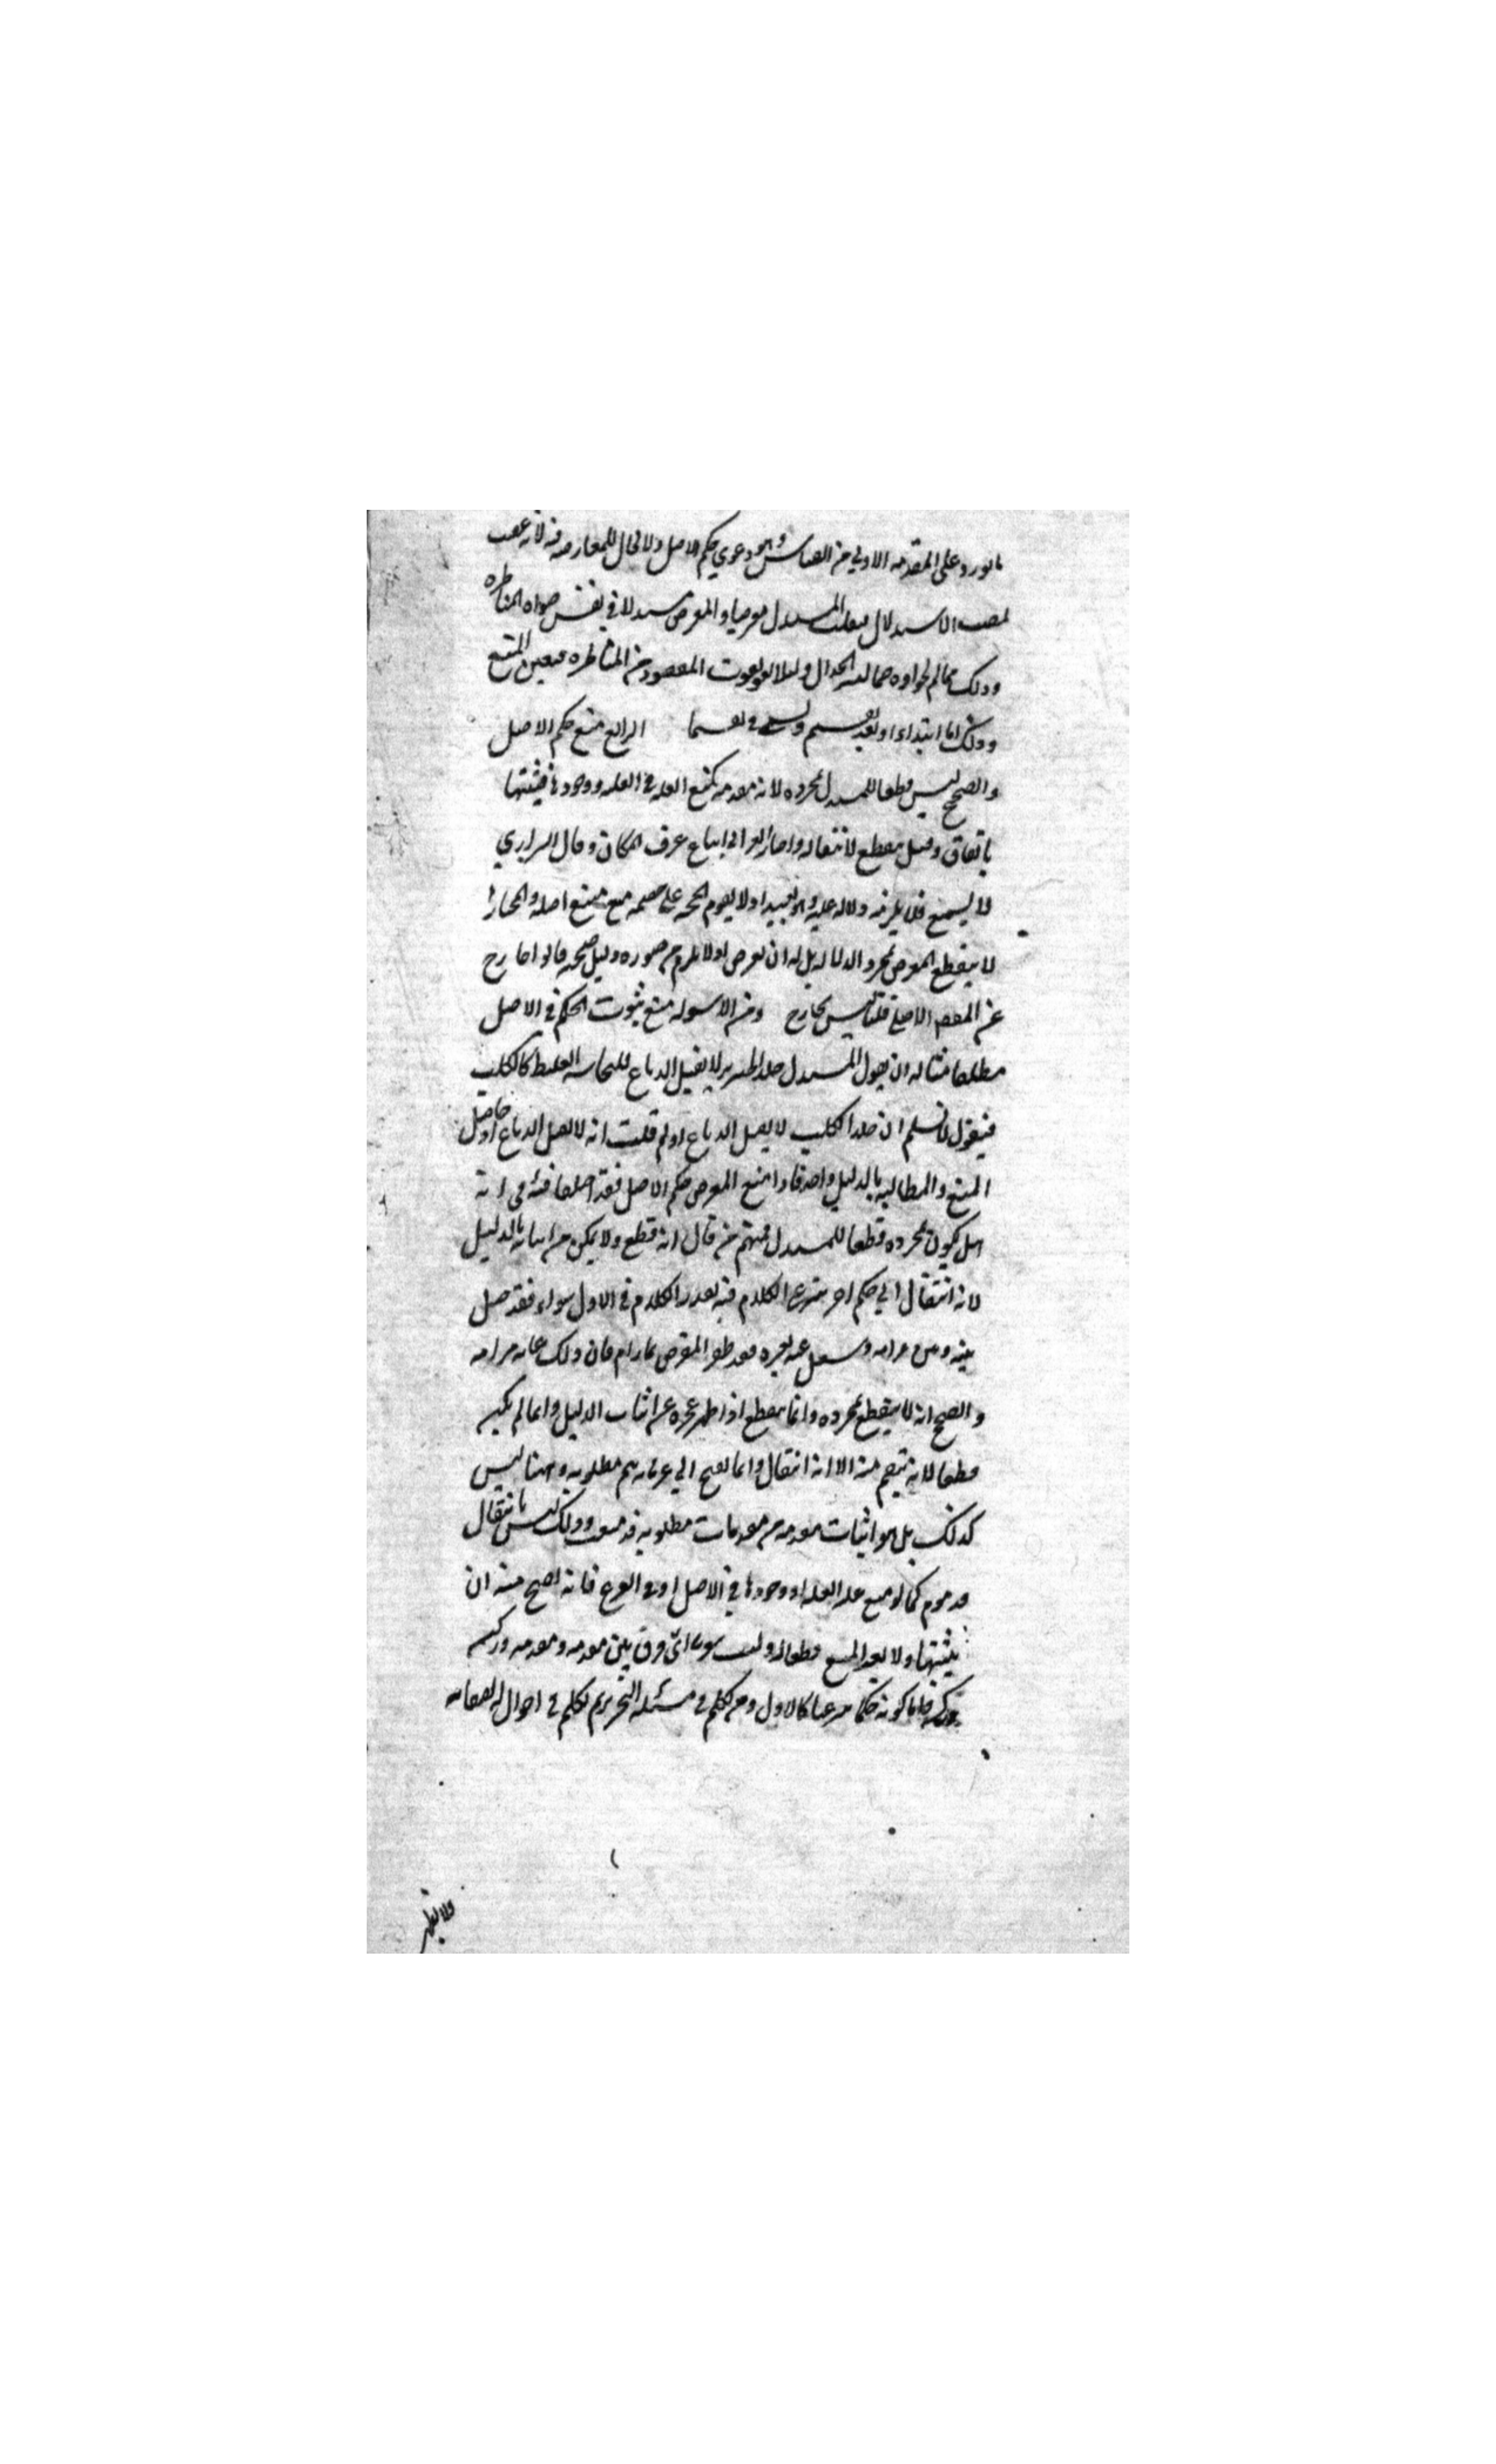 ما يورد على المقدمة الاولي من القياس وهو دعوي حكم الاصل ولا مجال للمعارضة فيه لانه غصب
لمنصب الاستدلال فينقلب المستدل معترضا والمعترض مستدلا في نفس صورة المناظرة
وذلك مما لم يجوزوه ضما لنشر الجدال ولئلا يفوت المقصود من المناظرة فتعين المنع
وذلك اما ابتداء او بعد تقسيم وليسمي تقسيما الرابع منع حكم الاصل
والصحيح ليس قطعا للمستدل بمجرده لانه مقدمة كمنع العلة في العلة ووجودها فيثبتها
باتفاق وقيل ينقطع لانتقاله واختار الغزالي اتباع عرف المكان وقال الشيرازي
لا يسمع فلا يلزمه دلالة عليه وهو بعيد اذ لا يقوم الحجة على خصمه مع منع اصله والمختار
لا ينقطع المعترض بمجرد الدلالة بل له ان يعترض اذ لا يلزم من صورة دليل صحته قالوا خارج
عن المقصود الاصلي قلنا ليس بخارج ومن الاسولة منع ثبوت الحكم في الاصل
مطلقا مثاله ان يقول المستدل جلد الخنزير لا يقبل الدباغ للنجاسة الغليظة كالكلب
فيقول لا نسلم ان جلد الكلب لا يقبل الدباغ او لم قلت انه لا يقبل الدباغ اذ حاصل
المنع والمطالبة بالدليل واحد فاذا منع المعترض حكم الاصل فقد اختلفا فيه في انه
هل يكون بمجرده قطعا للمستدل فمنهم من قال انه قطع ولا يمكن من اثباته بالدليل
لانه انتقال الي حكم اخر شرعي الكلام فيه بقدر الكلام في الاول سواء فقد حيل
بينه وبين مرامه وشغل عنه بغيره فقد ظفر المعترض بما رام فان ذلك غاية مرامه
والصحيح انه لا ينقطع بمجرده وانما ينقطع اذا ظهر عجزه عن اثبات الدليل وانما لم يكن
قطعا لانه منه الا انه انتقال وانما يقبح الي غير ما به يتم مطلوبه وههنا ليس
كذلك بل هو اثبات مقدمة من مقدمات مطلوبه قد منعت وذلك ليس بانتقال
مذموم كما لو منع علة العلة او وجودها في الاصل او في الفرع فانه يصح منه ان
يثبتها ولا يعد المنع قطعا له وليت شعري اي فرق بين مقدمة ومقدمة وركنية
وركنية فاما كونه حكما شرعيا كالاول ومن تكلم في مسئلة التحريم تكلم في احوال
ولا يظهر